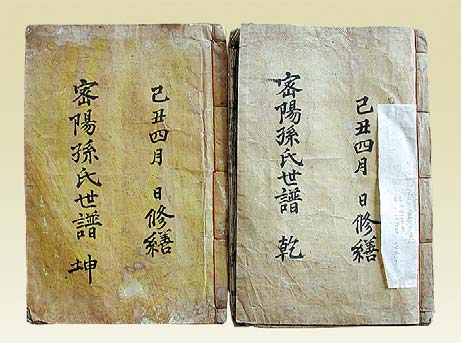 己丑四月 日修繕
密陽孫氏世譜 乾
己丑四月 日修繕
密陽孫氏世譜 坤